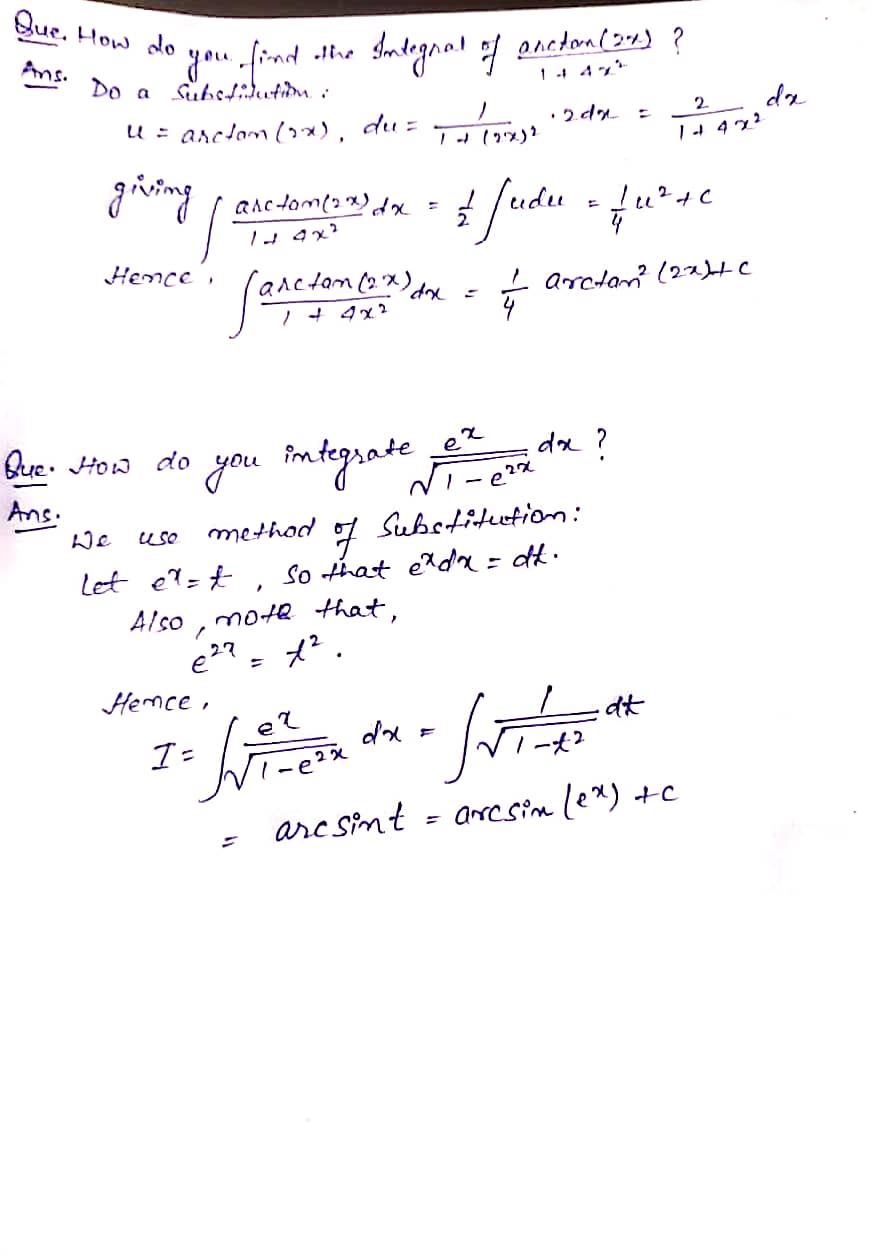 Que. How do you find the Integral of arctan(2x)/(1+4x²) ?
Ans. Do a Substitution :
u = arctan(2x), du = 1/(1+(2x)²) · 2dx = 2/(1+4x²) dx
giving ∫ arctan(2x)/(1+4x²) dx = 1/2 ∫ u du = 1/4 u² + c
Hence, ∫ arctan(2x)/(1+4x²) dx = 1/4 arctan²(2x)+c
Que. How do you integrate eˣ/√(1-e²ˣ) dx ?
Ans. We use method of Substitution:
Let eˣ = t, so that eˣdx = dt.
Also, note that,
e²ˣ = t².
Hence,
I = ∫ eˣ/√(1-e²ˣ) dx = ∫ 1/√(1-t²) dt
= arcsint = arcsin(eˣ) +c